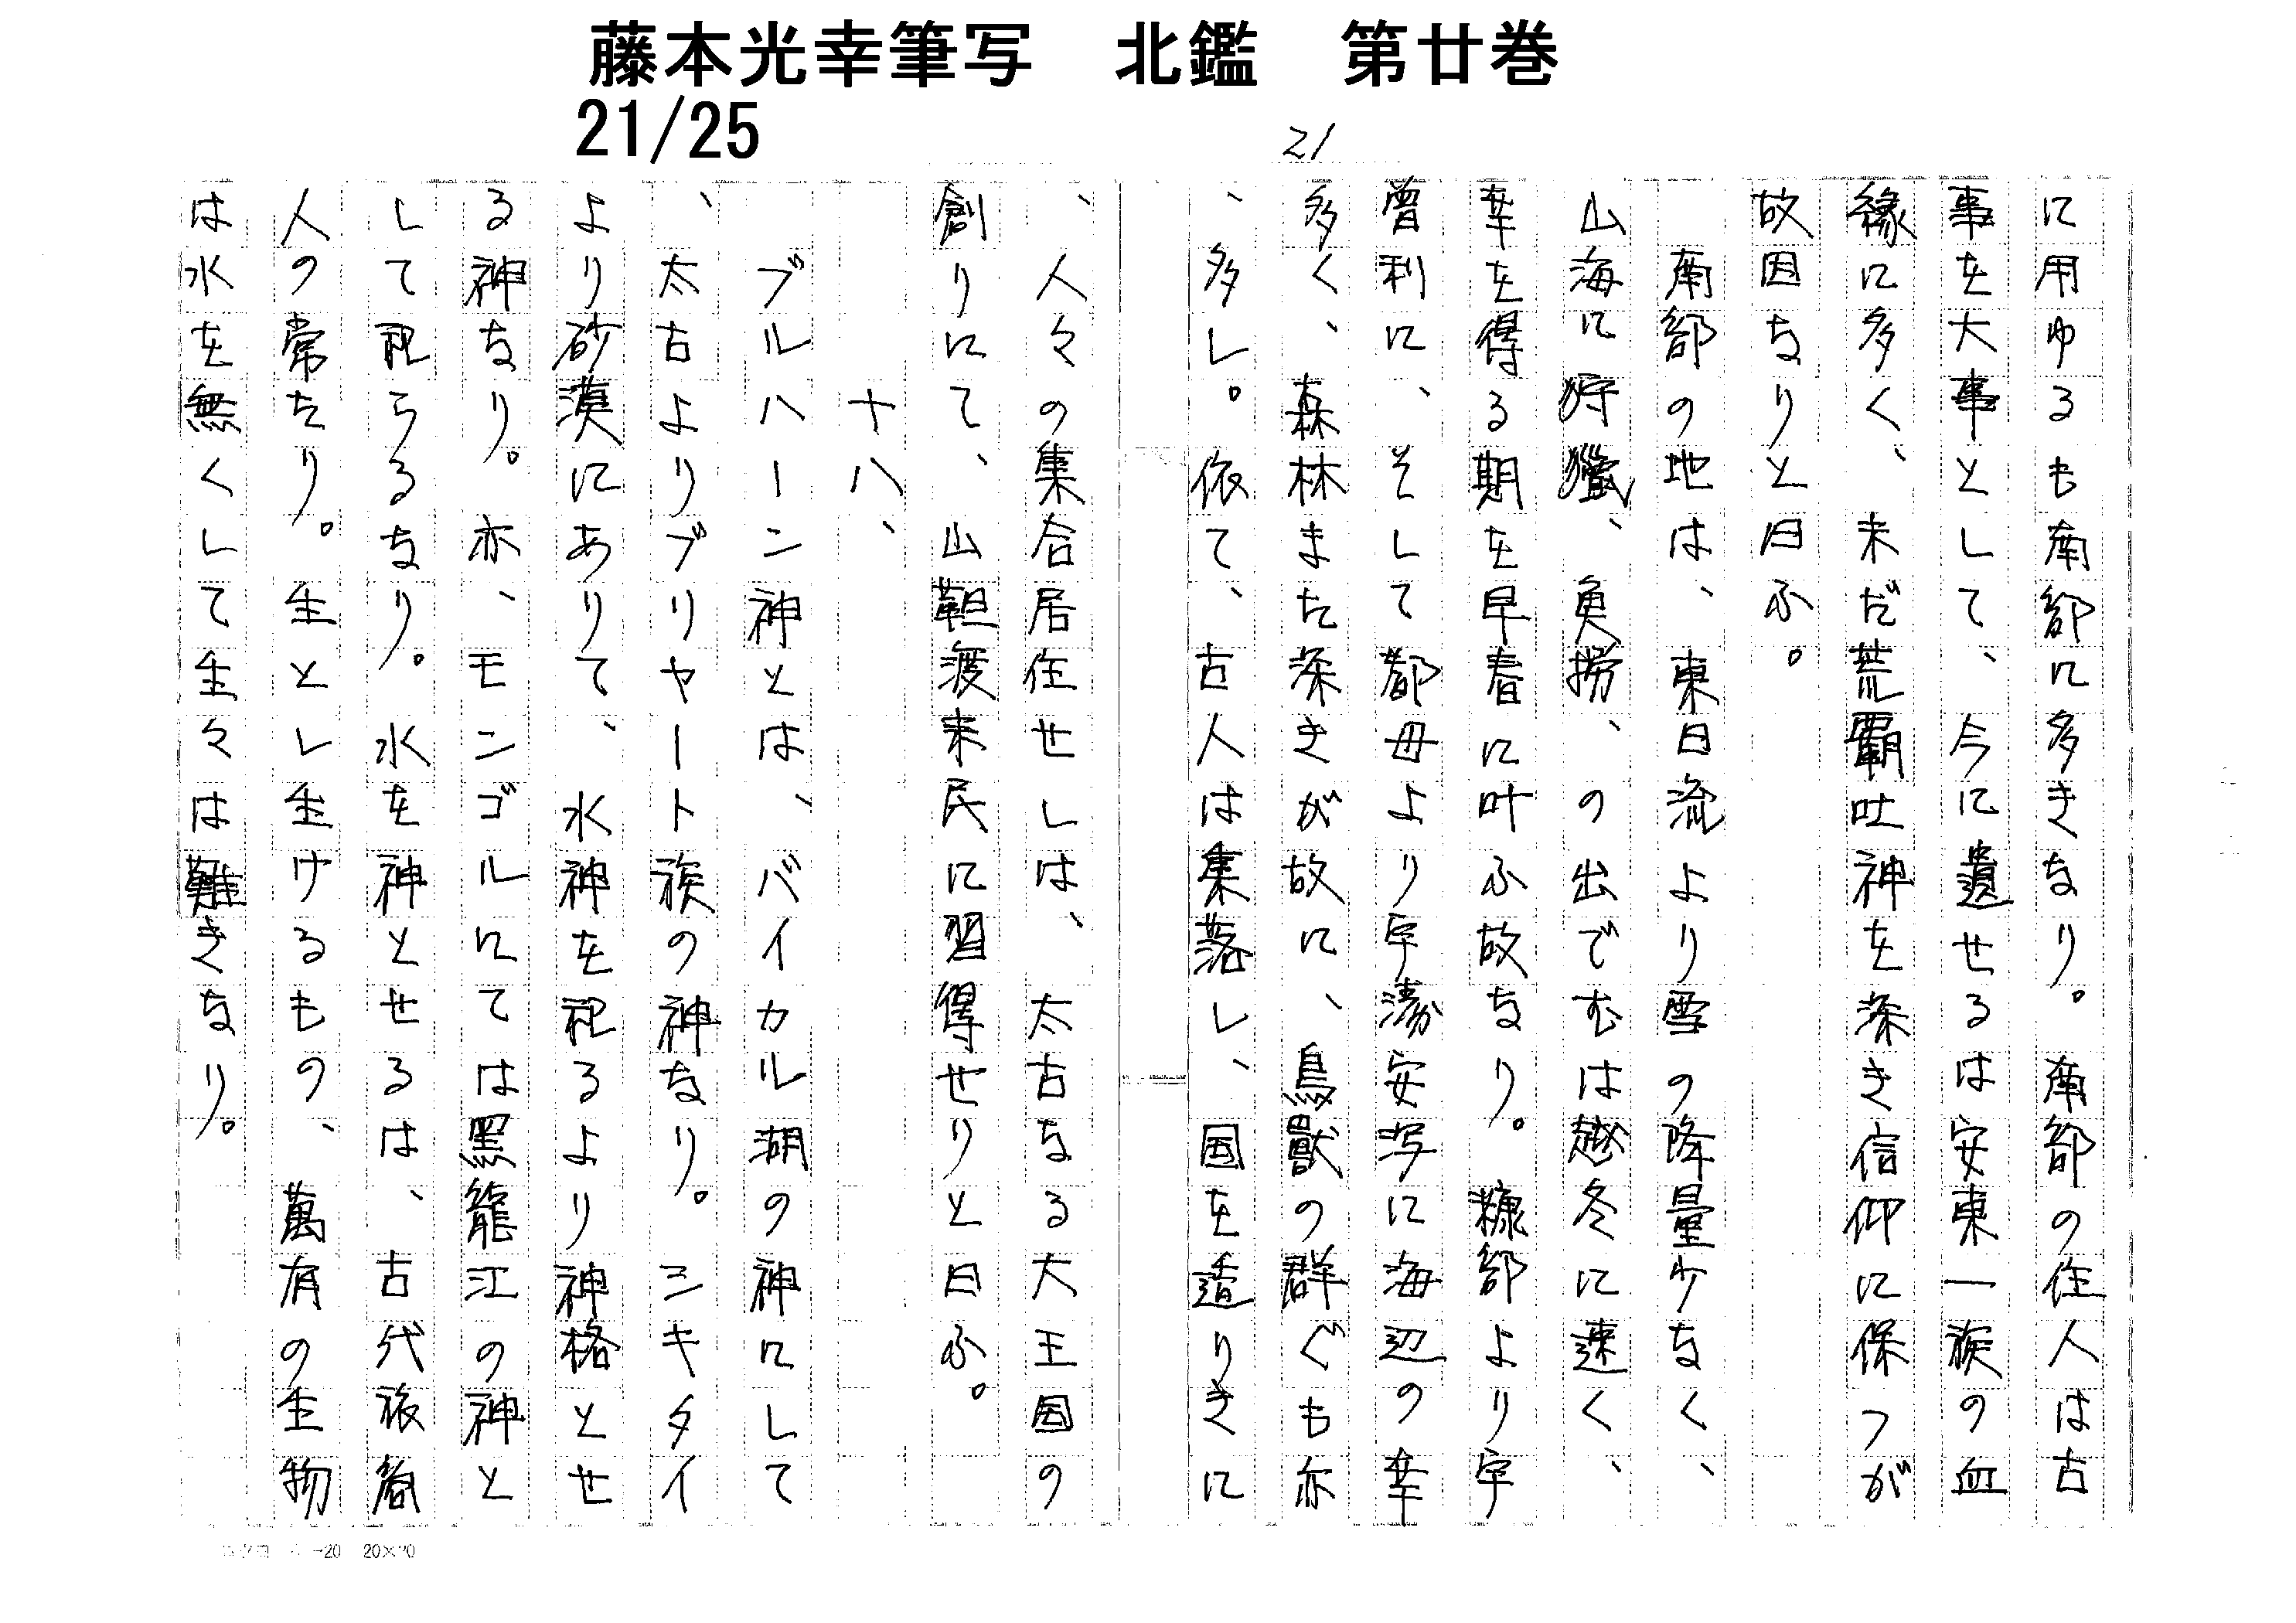 藤本光幸筆写　北鑑　第廿巻
21/25
21
に用ゆるも南部に多きなり。南部の住人は古
事を大事として、今に遺せるは安東一族の血
縁に多く、未だ荒覇吐神を深き信仰に保つが
故因なりと曰ふ。
　南部の地は、東日流より雪の降量少なく、
山海に狩猟、魚撈、の出でむは越冬に速く、
幸を得る期を早春に叶ふ故なり。糠部より宇
曽利に、そして都母より宇濤安写に海辺の幸
多く、森林また深きが故に、鳥獣の群ぐも亦
、多し。依て、古人は集落し、国を造りきに
、人々の集合居住せしは、太古なる大王国の
創りにて、山靼渡来民に習得せりと曰ふ。
十八、
　ブルハーン神とは、バイカル湖の神にして
、太古よりブリヤート族の神なり。シキタイ
より砂漠にありて、水神を祀るより神格とせ
る神なり。亦、モンゴルにては黒龍江の神と
して祀らるなり。水を神とせるは、古代旅商
人の常たり。生とし生けるもの、萬有の生物
は水を無くして生々は難きなり。
20×20